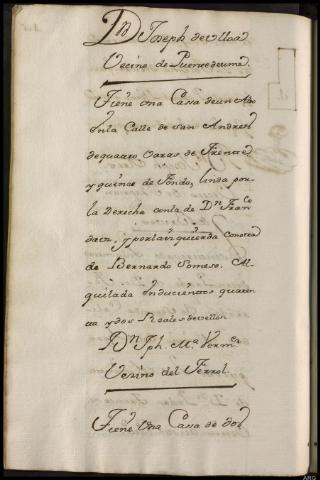 Dn Joseph de ulloa
Vecino de Puentedeume
Tiene Una Cassa de un Alto
En la Calle de San Andres
de quatro Varas de Frente
y quince de Fondo, linda por
la Derecha con la de Dn Franco
y por la izquierda con otra
de Bernardo Somoso. Al
quilada En ducientos quaren
ta y dos Reales de vellon
Dn Jph. Ma.
Vecino del Ferrol
Tiene Una Cassa de dos